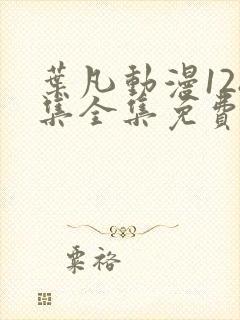 葉凡動漫12
集全集免費
粟裕